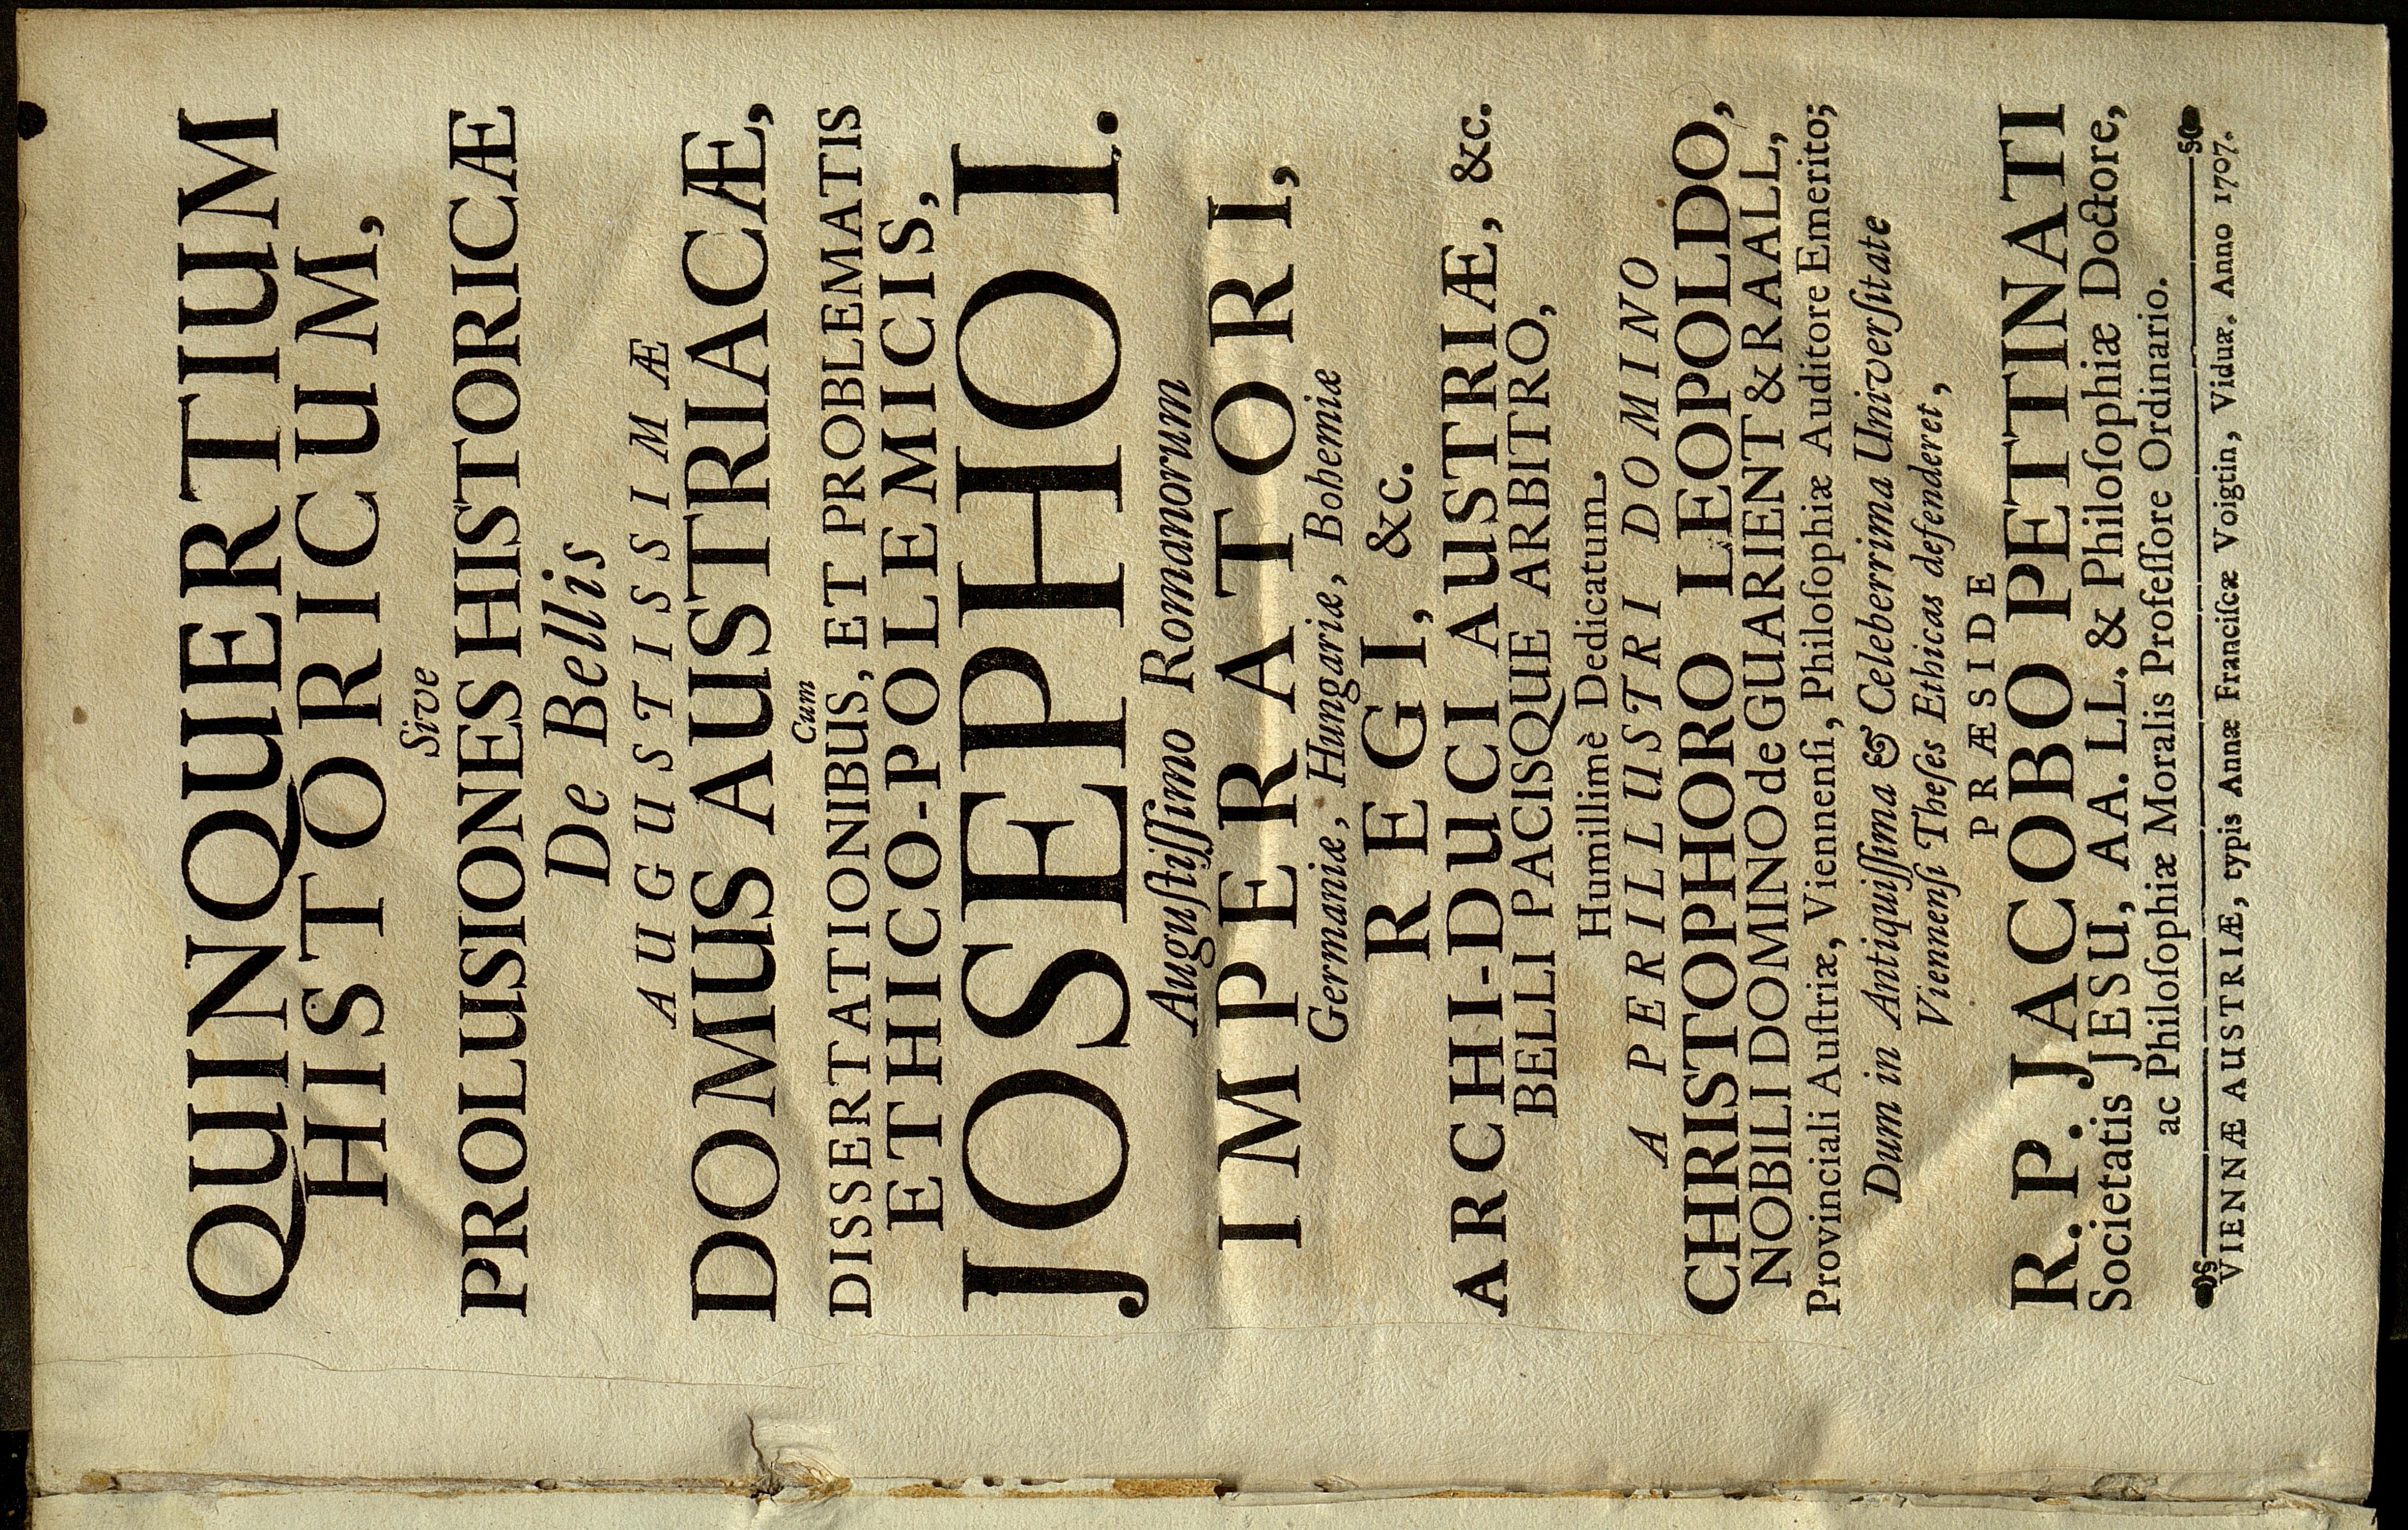 QUINQUERTIUM
HISTORICUM,
Sive
PROLUSIONES HISTORICÆ
De Bellis
AUGUSTISSIMÆ
DOMUS AUSTRIACÆ,
Cum
DISSERTATIONIBUS, ET PROBLEMATIS
ETHICO-POLEMICIS,
JOSEPHO I.
Auguſtiſſimo Romanorum
IMPERATORI,
Germaniæ, Hungariæ, Bohemiæ
REGI, &c.
ARCHI-DUCI AUSTRIÆ, &c.
BELLI PACISQUE ARBITRO,
Humillimè Dedicatum.
A PERILLUSTRI DOMINO
CHRISTOPHORO LEOPOLDO,
NOBILI DOMINO de GUARIENT & RAALL,
Provinciali Auſtriæ, Viennenſi, Philoſophiæ Auditore Emerito;
Dum in Antiquiſſima & Celeberrima Univerſitate
Viennenſi Theſes Ethicas defenderet,
PRÆSIDE
R. P. JACOBO PETTINATI
Societatis JESU, AA. LL. & Philoſophiæ Doctore,
ac Philoſophiæ Moralis Profeſſore Ordinario.
VIENNÆ AUSTRIÆ, typis Annæ Franciſcæ Voigtin, Viduæ. Anno 1707.